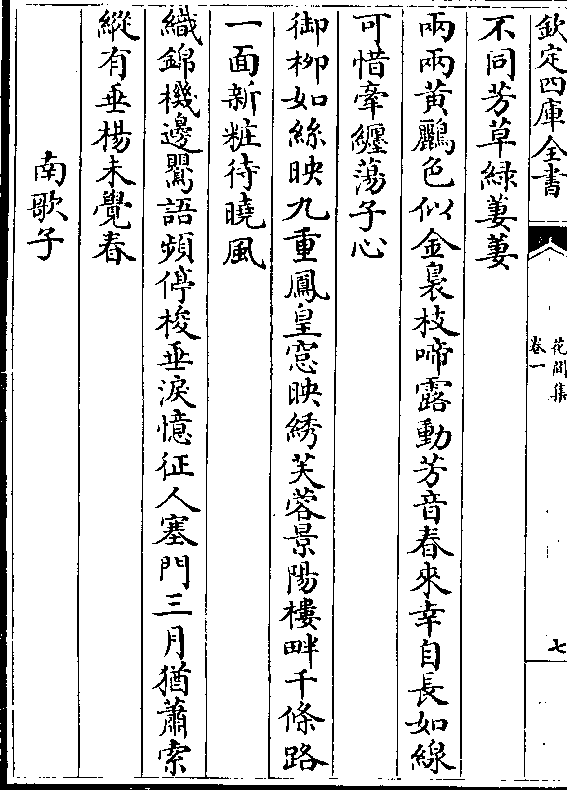 欽定四庫全書
花間集
卷一
七
不同芳草緑萋萋
兩兩黄鸝色似金裊枝啼露動芳音春來幸自長如線
可惜牽纒蕩子心
御栁如絲映九重鳳皇窓映綉芙蓉景陽樓畔千條路
一面新粧待曉風
織錦機邊鸎語頻停梭垂淚憶征人塞門三月猶蕭索
縱有垂楊未覺春
南歌子